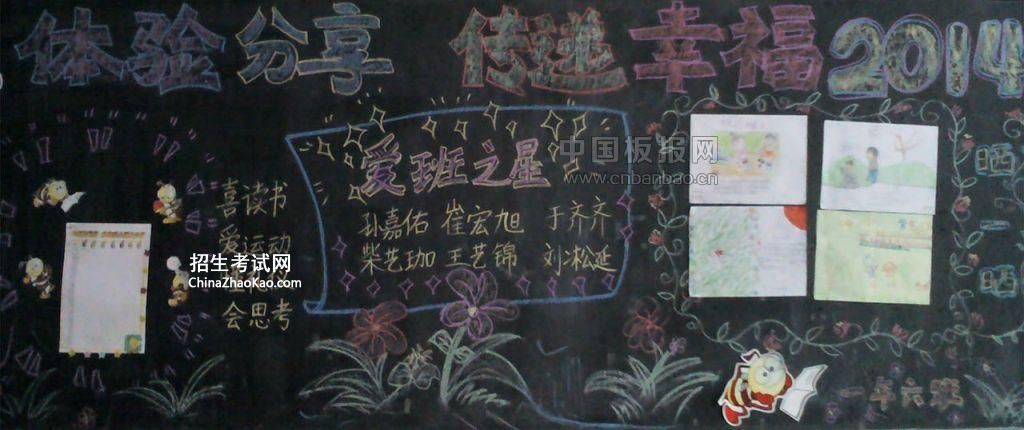 体验分享 传递幸福2014
爱班之星
孙嘉佑 崔宏旭 于齐齐
柴艺珈 王艺锦 刘凇延
喜读书
爱运动
会思考
晒一晒
一年六班
中国板报网
www.cnbanbao.cn
招生考试网
ChinaZhaoKao.com